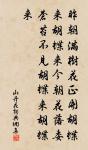 昨朝滿樹花正開胡蝶
來胡蝶來今朝花落委
蒼苔不見胡蝶來胡蝶
來
山丹花